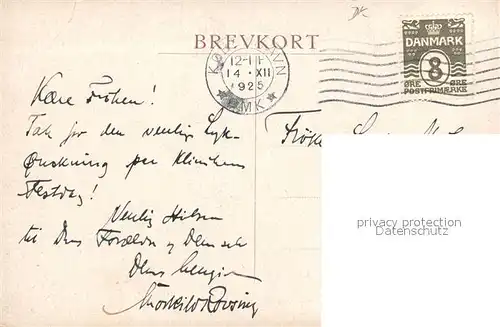 BREVKORT
KØBENHAVN
12-1 F
14 · XII
1925
OMK
DANMARK
8
ØRE ØRE
POSTFRIMÆRKE
Kære Frøken!
Tak for den venlige Lyk-
ønskning paa Klinikens
Festdag!
Venlig Hilsen
til Deres Forældre og Dem selv
Deres hengivne
Thorkild Rovsing
privacy protection
Datenschutz